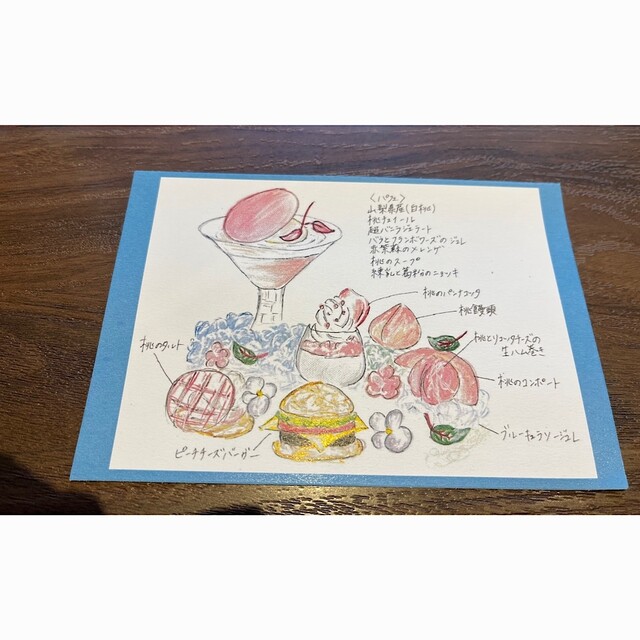 〈パフェ〉
山梨県産(白桃)
桃チュイール
超バニラジェラート
バラとフランボワーズのジュレ
赤紫蘇のメレンゲ
桃のスープ
練乳と葛粉のニョッキ
桃のパンナコッタ
桃饅頭
桃とリコッタチーズの
生ハム巻き
桃のコンポート
ブルーキュラソージュレ
桃のタルト
ピーチチーズバーガー